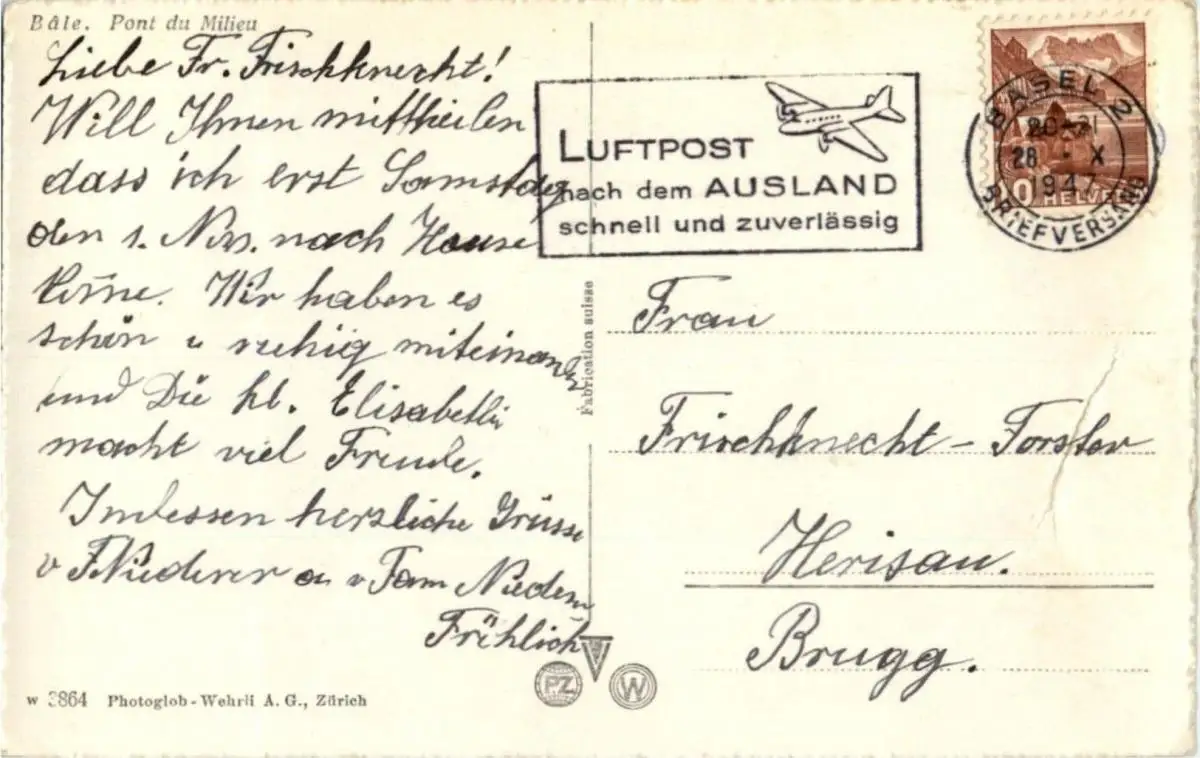 Bâle. Pont du Milieu
Liebe Fr. Frischknecht!
Will Ihnen mittheilen
dass ich erst Samstag
den 1. Nov. nach Hause
kom̄e. Wir haben es
schön u ruhig miteinander
und Die kl. Elisabethli
macht viel Freude.
Indessen herzliche Grüsse
v F. Niederer a v Fam Niederer
Fröhlich
w 3864 Photoglob-Wehrli A. G., Zürich
Fabrication suisse
PZ
W
LUFTPOST
nach dem AUSLAND
schnell und zuverlässig
BASEL 2
20-21
28 · X
1947
BRIEFVERSAND
HELVETIA
Frau
Frischknecht - Forster
Herisau.
Brugg.